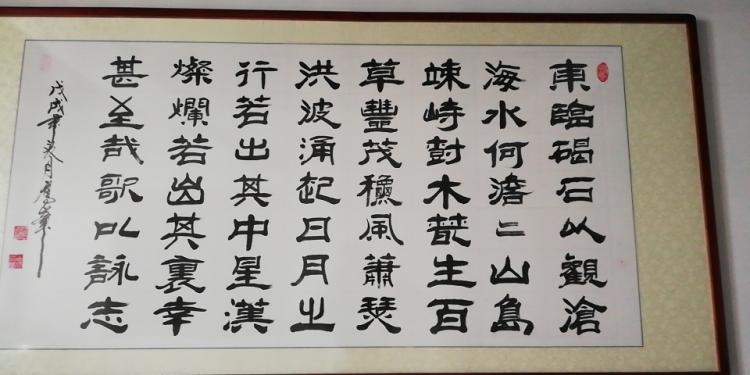 東臨碣石以觀滄
海水何澹二山島
竦峙樹木叢生百
草豐茂穐風蕭瑟
洪波涌起日月之
行若出其中星漢
燦爛若出其裏幸
甚至哉歌以詠志
戊戌年月